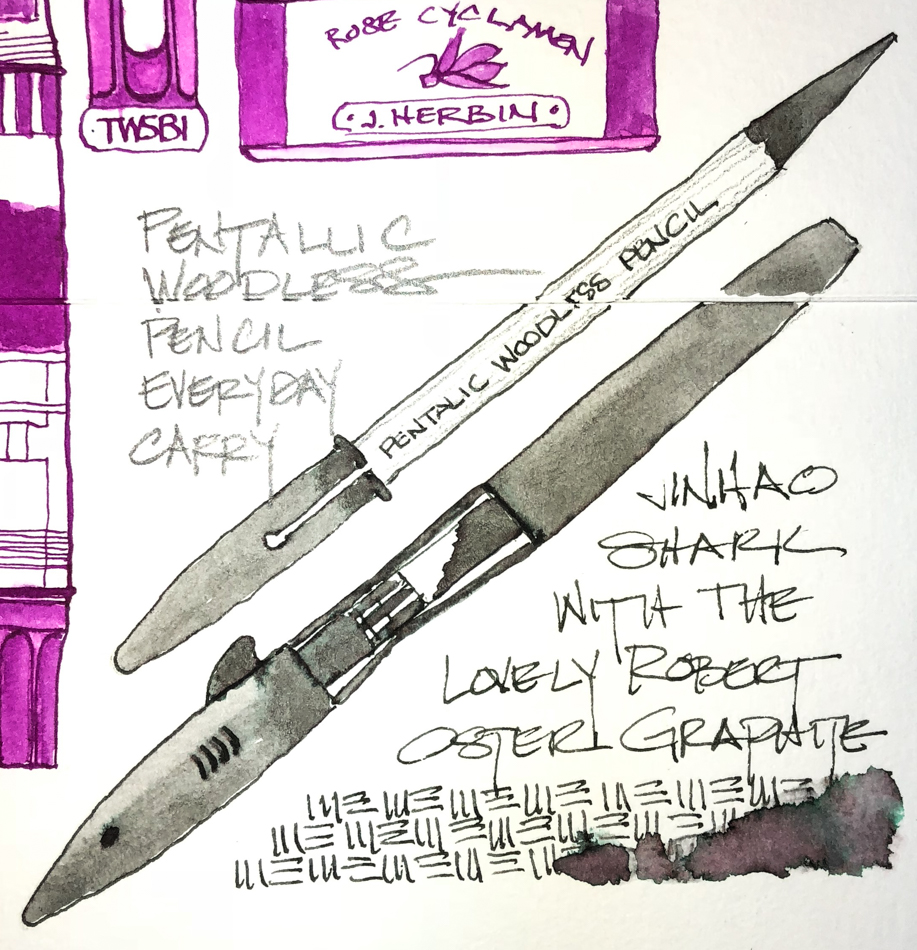 ROSE CYCLAMEN
J. HERBIN
TWSBI
PENTALLIC
WOODLESS
PENCIL
EVERYDAY
CARRY
PENTALIC WOODLESS PENCIL
JINHAO
SHARK
WITH THE
LOVELY ROBERT
OSTER GRAPHITE